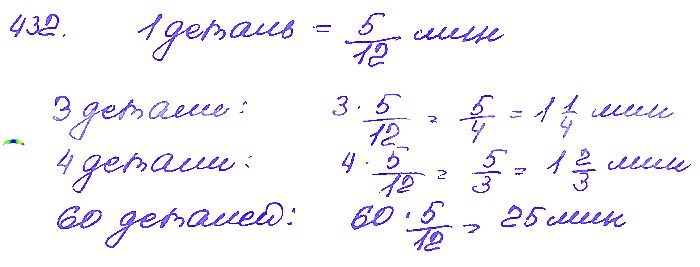 432. 1 деталь = 5/12 мин
3 детали: 3 · 5/12 = 5/4 = 1 1/4 мин
4 детали: 4 · 5/12 = 5/3 = 1 2/3 мин
60 деталей: 60 · 5/12 = 25 мин